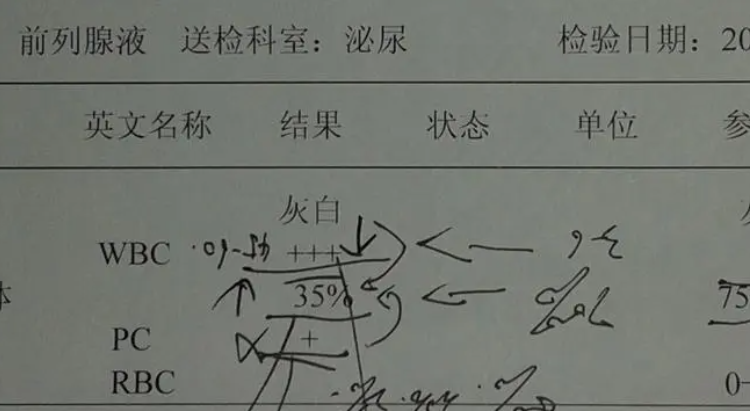 前列腺液 送检科室：泌尿 检验日期：20
英文名称 结果 状态 单位 参
灰白
WBC +++
体 35% 75
PC +
RBC 0-